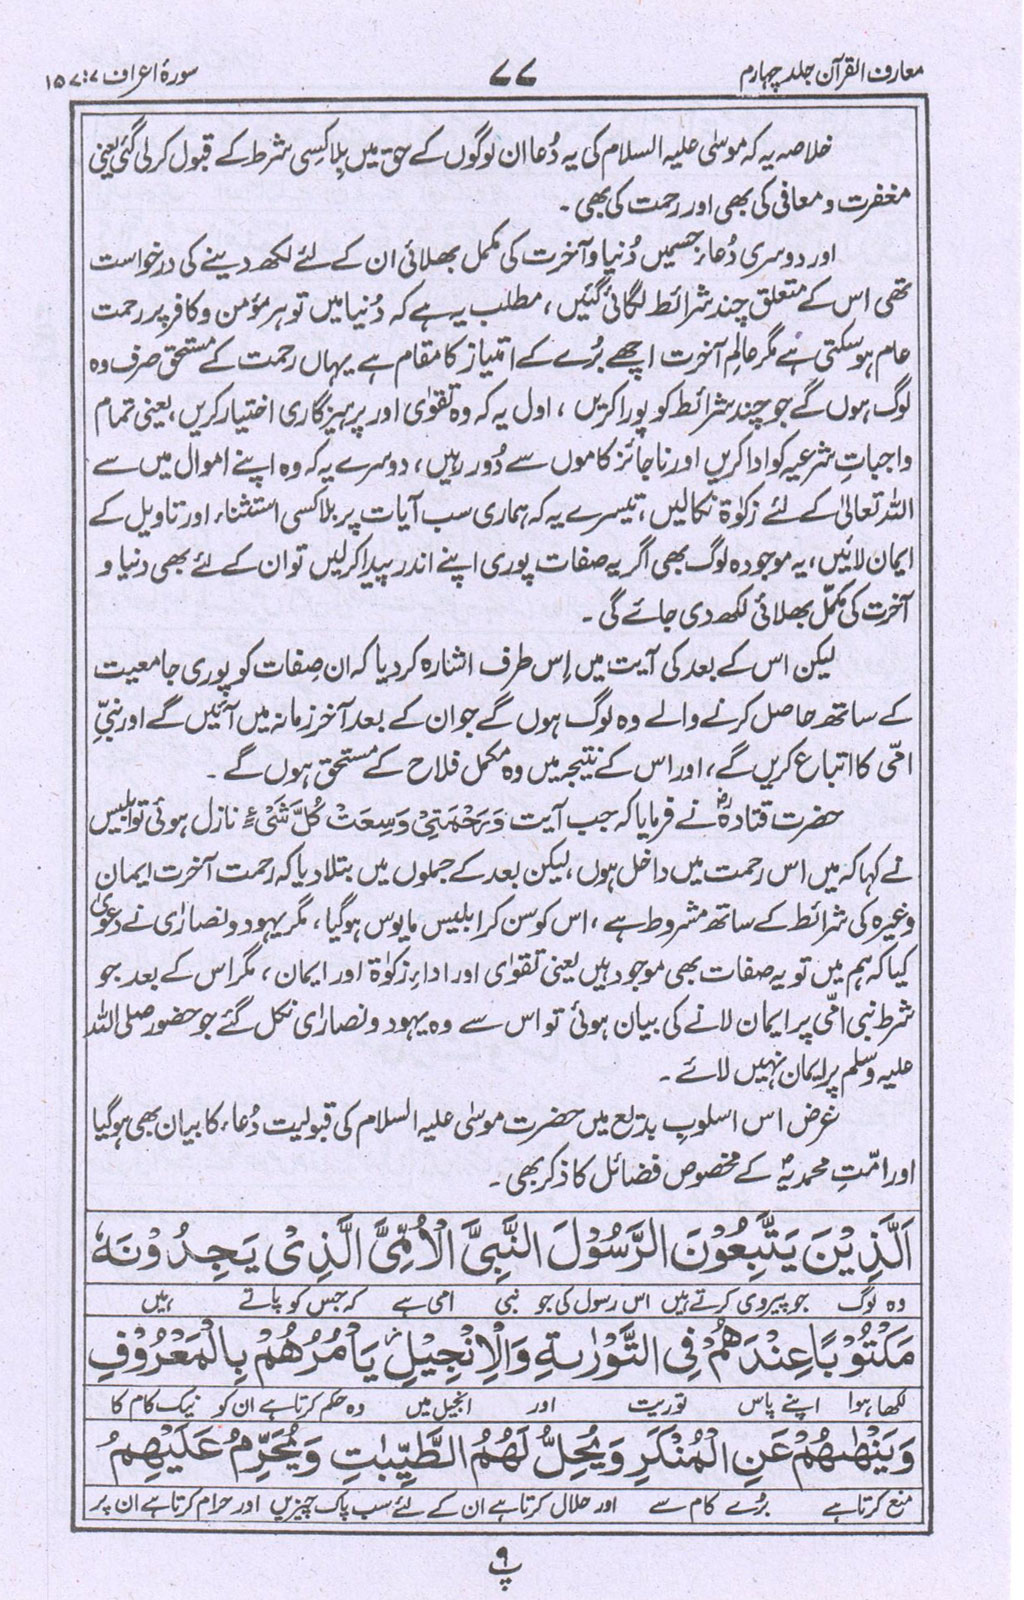 معارف القرآن جلد چہارم
۷۷
سورۂ اعراف ۷ : ۱۵۷
خلاصہ یہ کہ موسیٰ علیہ السلام کی یہ دُعا ان لوگوں کے حق میں بلا کسی شرط کے قبول کرلی گئی یعنی
مغفرت و معافی کی بھی اور رحمت کی بھی ۔
اور دوسری دُعاء جسمیں دُنیا و آخرت کی مکمل بھلائی ان کے لئے لکھ دینے کی درخواست
تھی اس کے متعلق چند شرائط لگائی گئیں ، مطلب یہ ہے کہ دُنیا میں تو ہر مؤمن و کافر پر رحمت
عام ہو سکتی ہے مگر عالمِ آخرت اچھے بُرے کے امتیاز کا مقام ہے یہاں رحمت کے مستحق صرف وہ
لوگ ہوں گے جو چند شرائط کو پورا کریں ، اول یہ کہ وہ تقویٰ اور پرہیزگاری اختیار کریں ، یعنی تمام
واجباتِ شرعیہ کو ادا کریں اور ناجائز کاموں سے دُور رہیں ، دوسرے یہ کہ وہ اپنے اموال میں سے
اللہ تعالیٰ کے لئے زکوٰۃ نکالیں ، تیسرے یہ کہ ہماری سب آیات پر بلا کسی استثناء اور تاویل کے
ایمان لائیں ، یہ موجودہ لوگ بھی اگر یہ صفات پوری اپنے اندر پیدا کرلیں تو ان کے لئے بھی دنیا و
آخرت کی مکمّل بھلائی لکھ دی جائے گی ۔
لیکن اس کے بعد کی آیت میں اِس طرف اشارہ کر دیا کہ ان صِفات کو پوری جامعیت
کے ساتھ حاصل کرنے والے وہ لوگ ہوں گے جو ان کے بعد آخر زمانہ میں آئیں گے اور نبیِّ
امّی کا اتباع کریں گے ، اور اس کے نتیجہ میں وہ مکمل فلاح کے مستحق ہوں گے ۔
حضرت قتادہؓ نے فرمایا کہ جب آیت وَرَحْمَتِیْ وَسِعَتْ کُلَّ شَیْءٍ نازل ہوئی تو ابلیس
نے کہا کہ میں اس رحمت میں داخل ہوں ، لیکن بعد کے جملوں میں بتلا دیا کہ رحمت آخرت ایمان
وغیرہ کی شرائط کے ساتھ مشروط ہے ، اس کو سن کر ابلیس مایوس ہو گیا ، مگر یہود و نصاریٰ نے دعویٰ
کیا کہ ہم میں تو یہ صفات بھی موجود ہیں یعنی تقویٰ اور اداءِ زکوٰۃ اور ایمان ، مگر اس کے بعد جو
شرط نبی امّی پر ایمان لانے کی بیان ہوئی تو اس سے وہ یہود و نصاریٰ نکل گئے جو حضور صلی اللہ
علیہ وسلم پر ایمان نہیں لائے ۔
غرض اس اسلوبِ بدیع میں حضرت موسیٰ علیہ السلام کی قبولیت دُعاء کا بیان بھی ہو گیا
اور امّتِ محمدیہؐ کے مخصوص فضائل کا ذکر بھی ۔
اَلَّذِیْنَ یَتَّبِعُوْنَ الرَّسُوْلَ النَّبِیَّ الْاُمِّیَّ الَّذِیْ یَجِدُوْنَهٗ
وہ لوگ جو پیروی کرتے ہیں اس رسول کی جو نبی امی ہے کہ جس کو پاتے ہیں
مَکْتُوْبًا عِنْدَهُمْ فِی التَّوْرٰىةِ وَالْاِنْجِیْلِ یَاْمُرُهُمْ بِالْمَعْرُوْفِ
لکھا ہوا اپنے پاس توریت اور انجیل میں وہ حکم کرتا ہے ان کو نیک کام کا
وَیَنْهٰىهُمْ عَنِ الْمُنْکَرِ وَیُحِلُّ لَهُمُ الطَّیِّبٰتِ وَیُحَرِّمُ عَلَیْهِمُ
منع کرتا ہے بُرے کام سے اور حلال کرتا ہے ان کے لئے سب پاک چیزیں اور حرام کرتا ہے ان پر
پ ۹